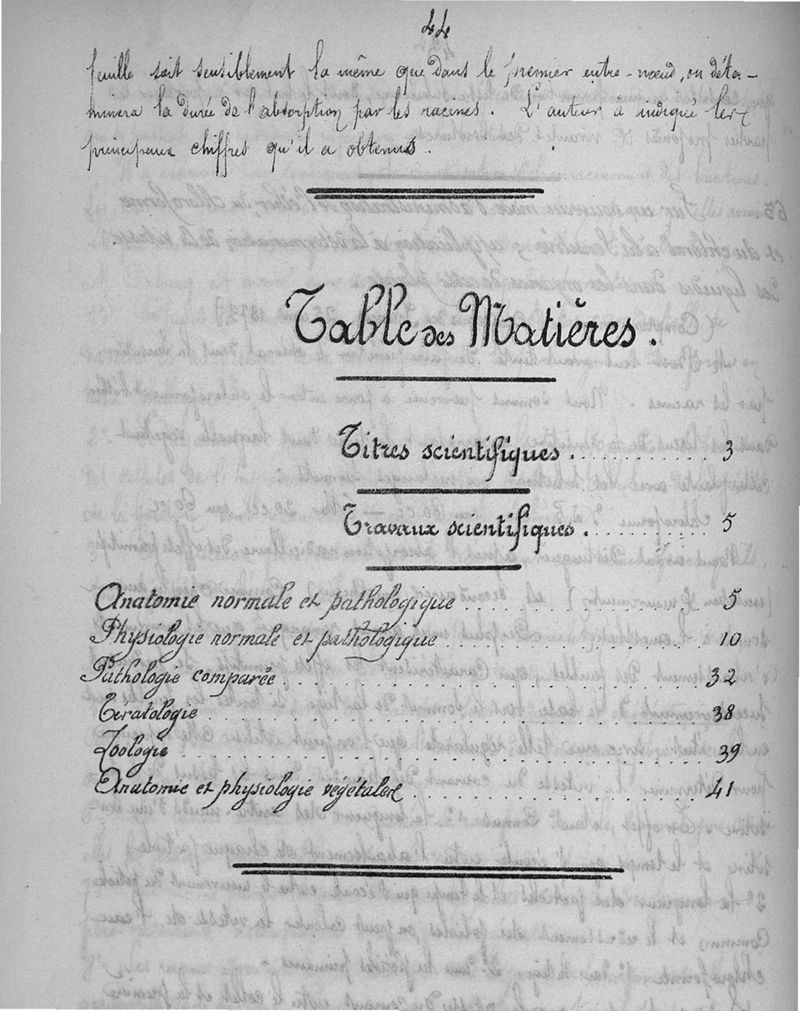 44
feuille soit sensiblement la même que dans le premier entre-nœud, on déter-
minera la durée de l'absorption par les racines. L'auteur a indiqué les
principaux chiffres qu'il a obtenus.
Table des Matières.
Titres scientifiques. . . . . . . . . . . 3
Travaux scientifiques. . . . . . . . . . 5
Anatomie normale et pathologique . . . . . . . . . . 5
Physiologie normale et pathologique . . . . . . . . . . 10
Pathologie comparée . . . . . . . . . . 32
Tératologie . . . . . . . . . . 38
Zoologie . . . . . . . . . . 39
Anatomie et physiologie végétales . . . . . . . . . . 41